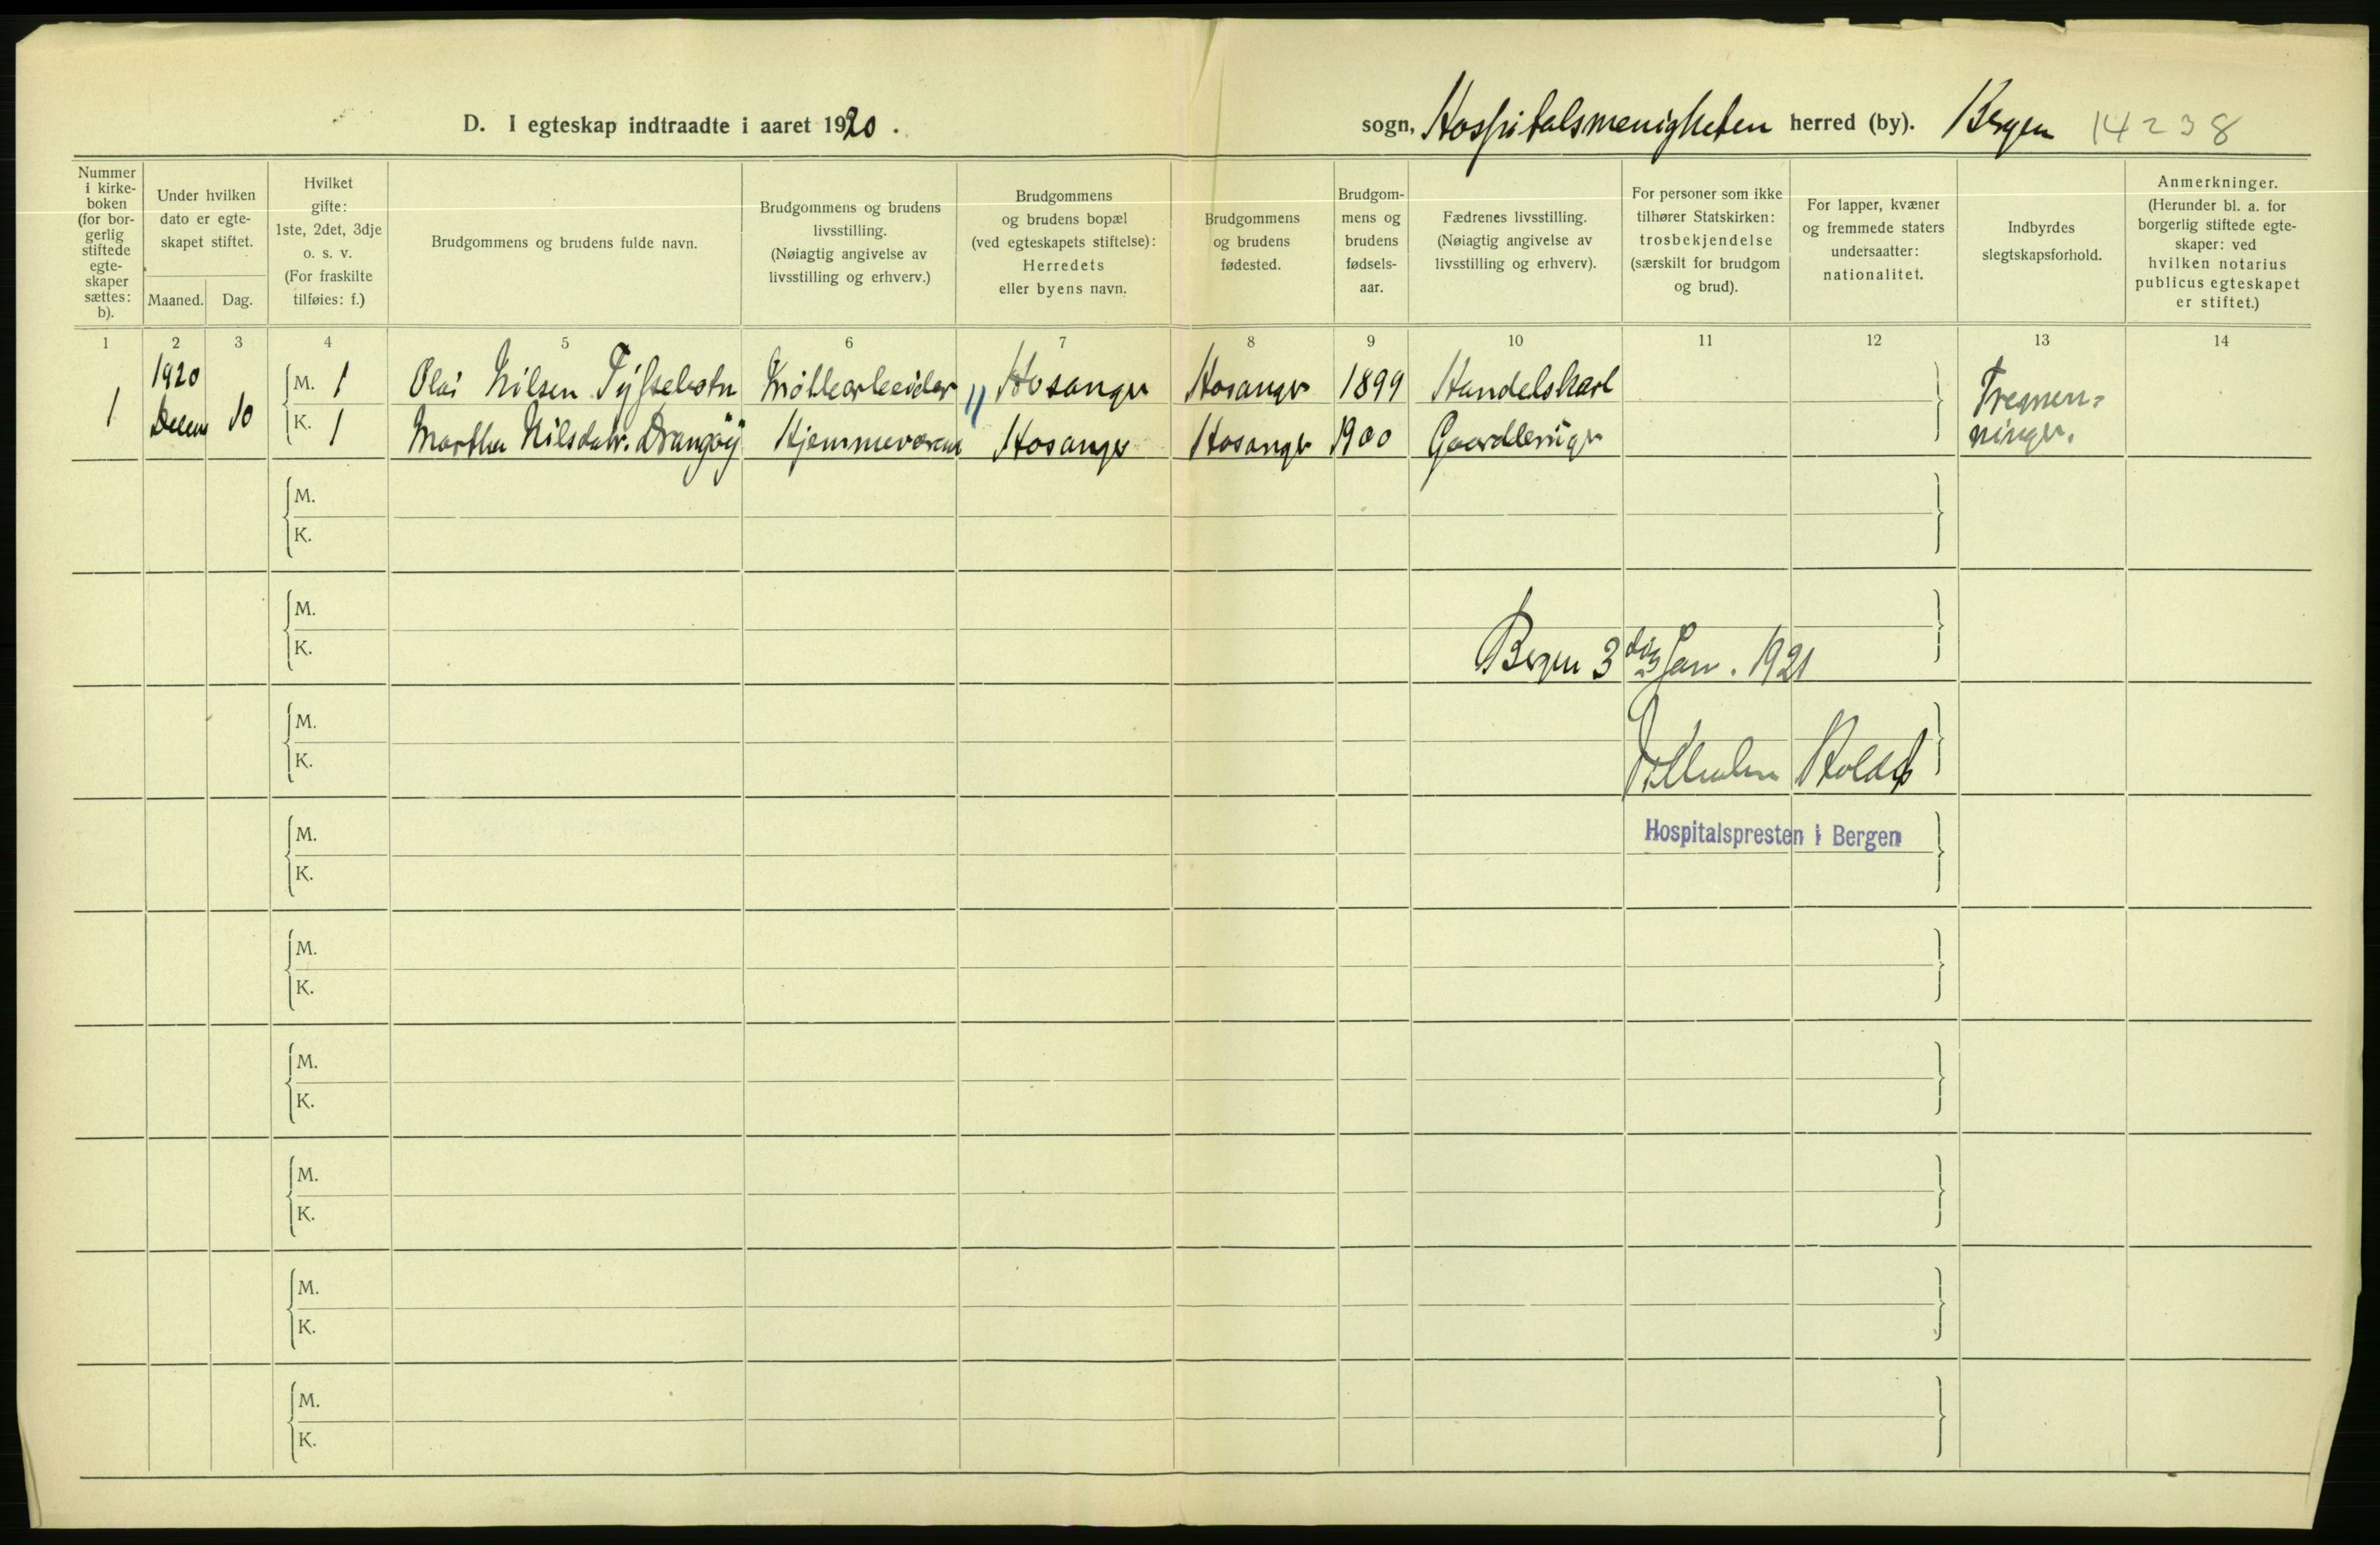 D. I egteskap indtraadte i aaret 1920.
sogn, Hospitalsmenigheten herred (by). Bergen 14238
Nummer i kirke-boken (for bor-gerlig stiftede egte-skaper sættes: b).
Under hvilken dato er egte-skapet stiftet.
Maaned. Dag.
Hvilket gifte: 1ste, 2det, 3dje o. s. v. (For fraskilte tilføies: f.)
Brudgommens og brudens fulde navn.
Brudgommens og brudens livsstilling. (Nøiagtig angivelse av livsstilling og erhverv.)
Brudgommens og brudens bopæl (ved egteskapets stiftelse): Herredets eller byens navn.
Brudgommens og brudens fødested.
Brudgom-mens og brudens fødsels-aar.
Fædrenes livsstilling. (Nøiagtig angivelse av livsstilling og erhverv).
For personer som ikke tilhører Statskirken: trosbekjendelse (særskilt for brudgom og brud).
For lapper, kvæner og fremmede staters undersaatter: nationalitet.
Indbyrdes slegtskapsforhold.
Anmerkninger. (Herunder bl. a. for borgerlig stiftede egte-skaper: ved hvilken notarius publicus egteskapet er stiftet.)
1 2 3 4 5 6 7 8 9 10 11 12 13 14
1920
M. 1 Olai Nilsen Tysseboth Møllearbeider Hosanger Hosanger 1899 Handelskarl
1 Decem 10
K. 1 Martha Nilsdatr. Drangøy Hjemmeværend Hosanger Hosanger 1900 Gaardbruger
Tremen-
ninger.
M.
K.
M.
K.
Bergen 3 Jan. 1921
M.
K.
Vilhelm
M.
K.
Hospitalspresten i Bergen
M.
K.
M.
K.
M.
K.
M.
K.
M.
K.